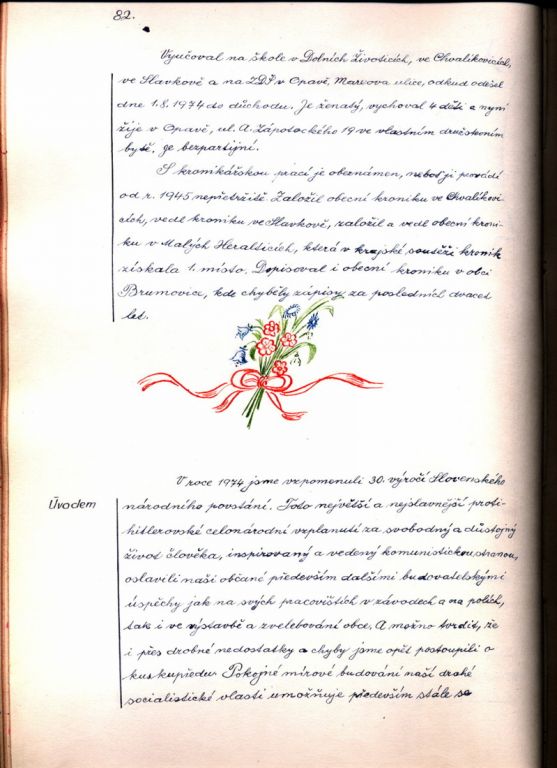 82.
Vyučoval na škole v Dolních Životicích, ve Chvalíkovicích,
ve Slavkově a na ZDŠ v Opavě, Mařova ulice, odkud odešel
dne 1.8.1974 do důchodu. Je ženatý, vychoval 4 děti a nyní
žije v Opavě, ul. A. Zápotockého 19 ve vlastním družstevním
bytě. Je bezpartijní.
S kronikářskou prací je obeznámen, neboť ji provádí
od r. 1945 nepřetržitě. Založil obecní kroniku ve Chvalíkovi-
cích, vedl kroniku ve Slavkově, založil a vedl obecní kroni-
ku v Malých Heralticích, která v krajské soutěži kronik
získala 1. místo. Dopisoval i obecní kroniku v obci
Brumovice, kde chyběly zápisy za posledních dvacet
let.
V roce 1974 jsme vzpomenuli 30. výročí Slovenského
Úvodem
národního povstání. Toto největší a nejslavnější proti-
hitlerovské celonárodní vzplanutí za svobodný a důstojný
život člověka, inspirovaný a vedený komunistickou stranou,
oslavili naši občané především dalšími budovatelskými
úspěchy jak na svých pracovištích v závodech a na polích,
tak i ve výstavbě a zvelebování obce. A možno tvrdit, že
i přes drobné nedostatky a chyby jsme opět postoupili o
kus kupředu. Pokojné mírové budování naší drahé
socialistické vlasti umožňuje především stále se